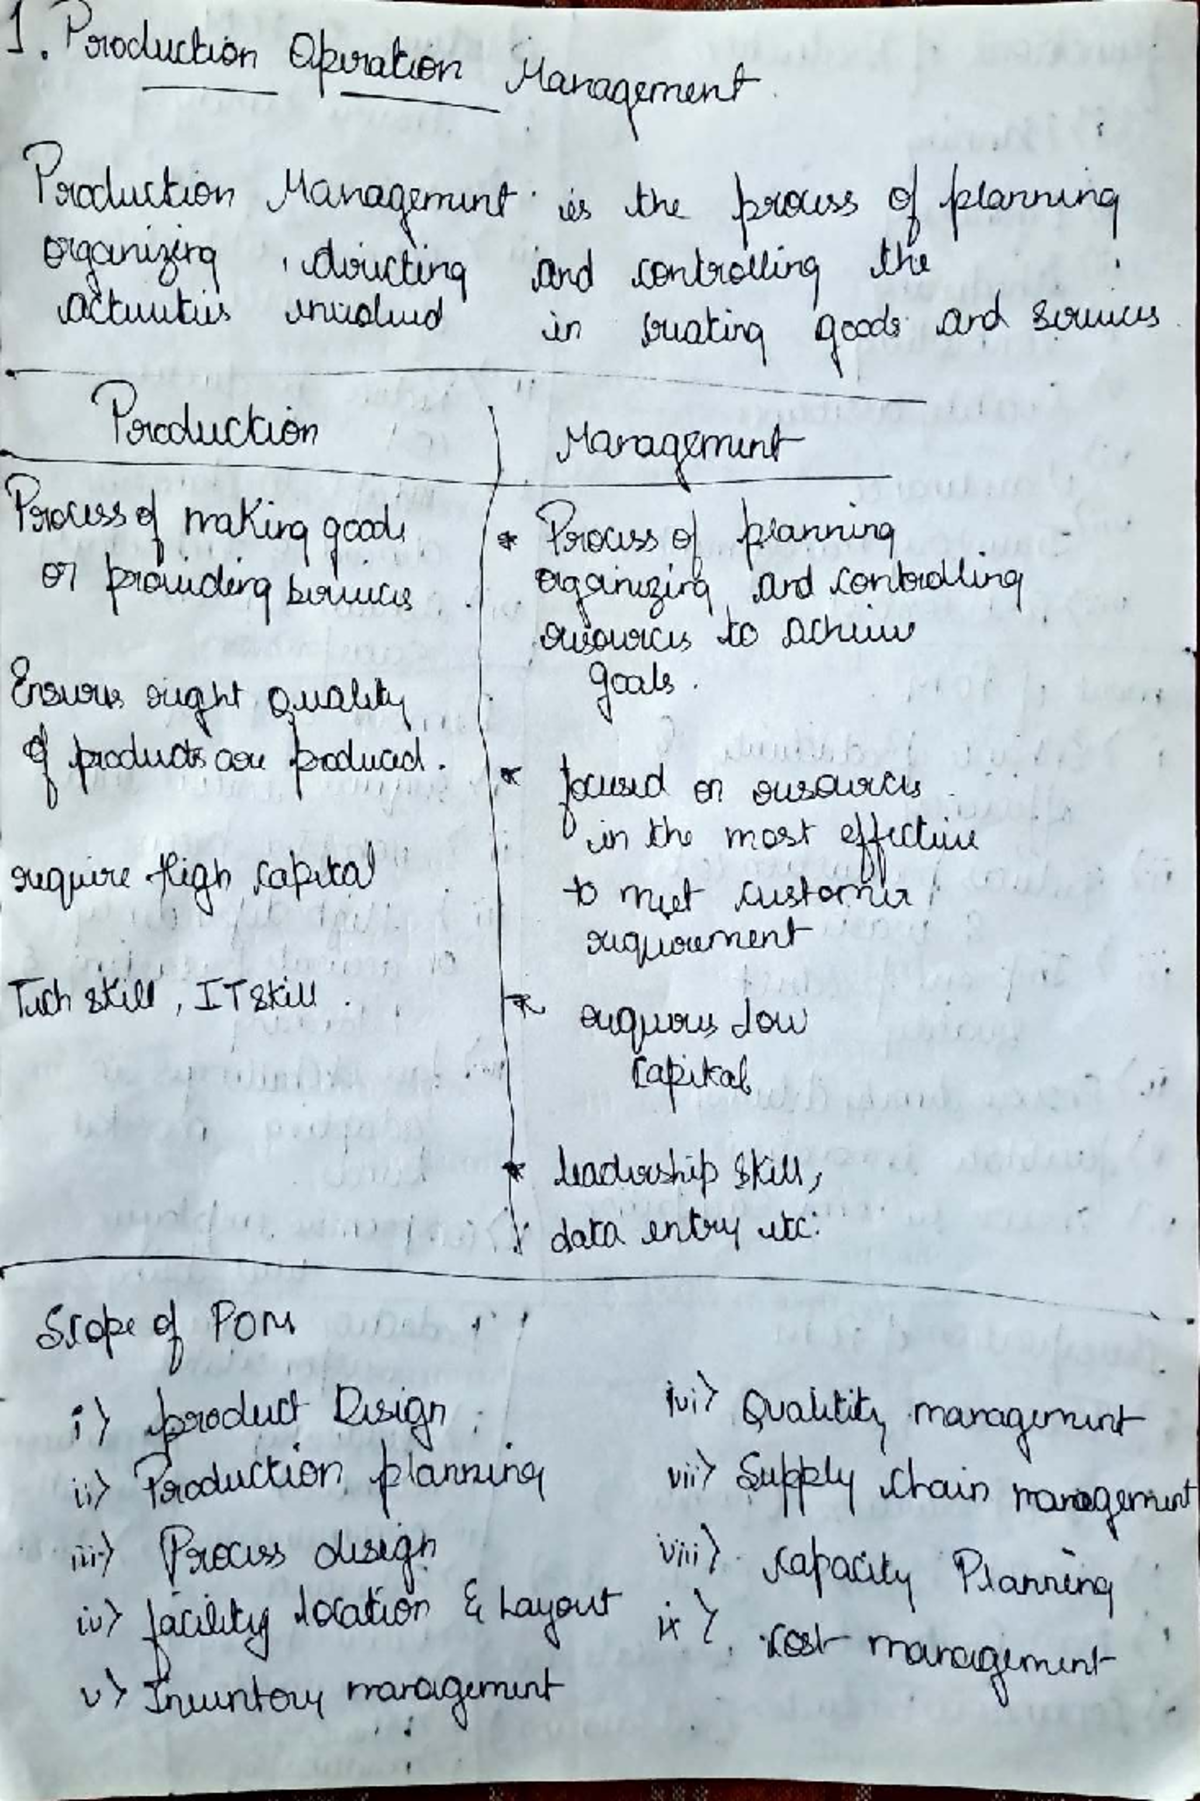 1. Production Operation Management
Production Management is the process of planning
organizing, directing and controlling the
activities involved in creating goods and services
Production
Process of making goods
or providing services
Ensures right quality
of products are produced.
require High capital
Tech skill, IT skill.
Management
* Process of planning
organizing and controlling
resources to achieve
goals.
* focused on resources
in the most effective
to meet customer
requirement
* requires low
capital
* leadership skill,
data entry etc.
Scope of POM
i) product Design
ii) Production planning
iii) Process design
iv) facility location & Layout
v) Inventory management
vi) Quality management
vii) Supply chain management
viii) capacity Planning
ix) cost management